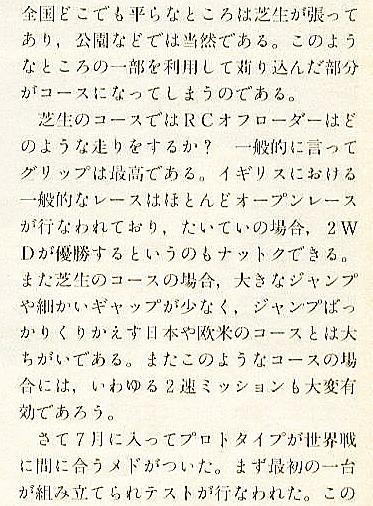 全国どこでも平らなところは芝生が張って
あり，公園などでは当然である。このよう
なところの一部を利用して刈り込んだ部分
がコースになってしまうのである。
　芝生のコースではＲＣオフローダーはど
のような走りをするか？　一般的に言って
グリップは最高である。イギリスにおける
一般的なレースはほとんどオープンレース
が行なわれており，たいていの場合，２Ｗ
Ｄが優勝するというのもナットクできる。
また芝生のコースの場合，大きなジャンプ
や細かいギャップが少なく，ジャンプばっ
かりくりかえす日本や欧米のコースとは大
ちがいである。またこのようなコースの場
合には，いわゆる２速ミッションも大変有
効であろう。
　さて７月に入ってプロトタイプが世界戦
に間に合うメドがついた。まず最初の一台
が組み立てられテストが行なわれた。この